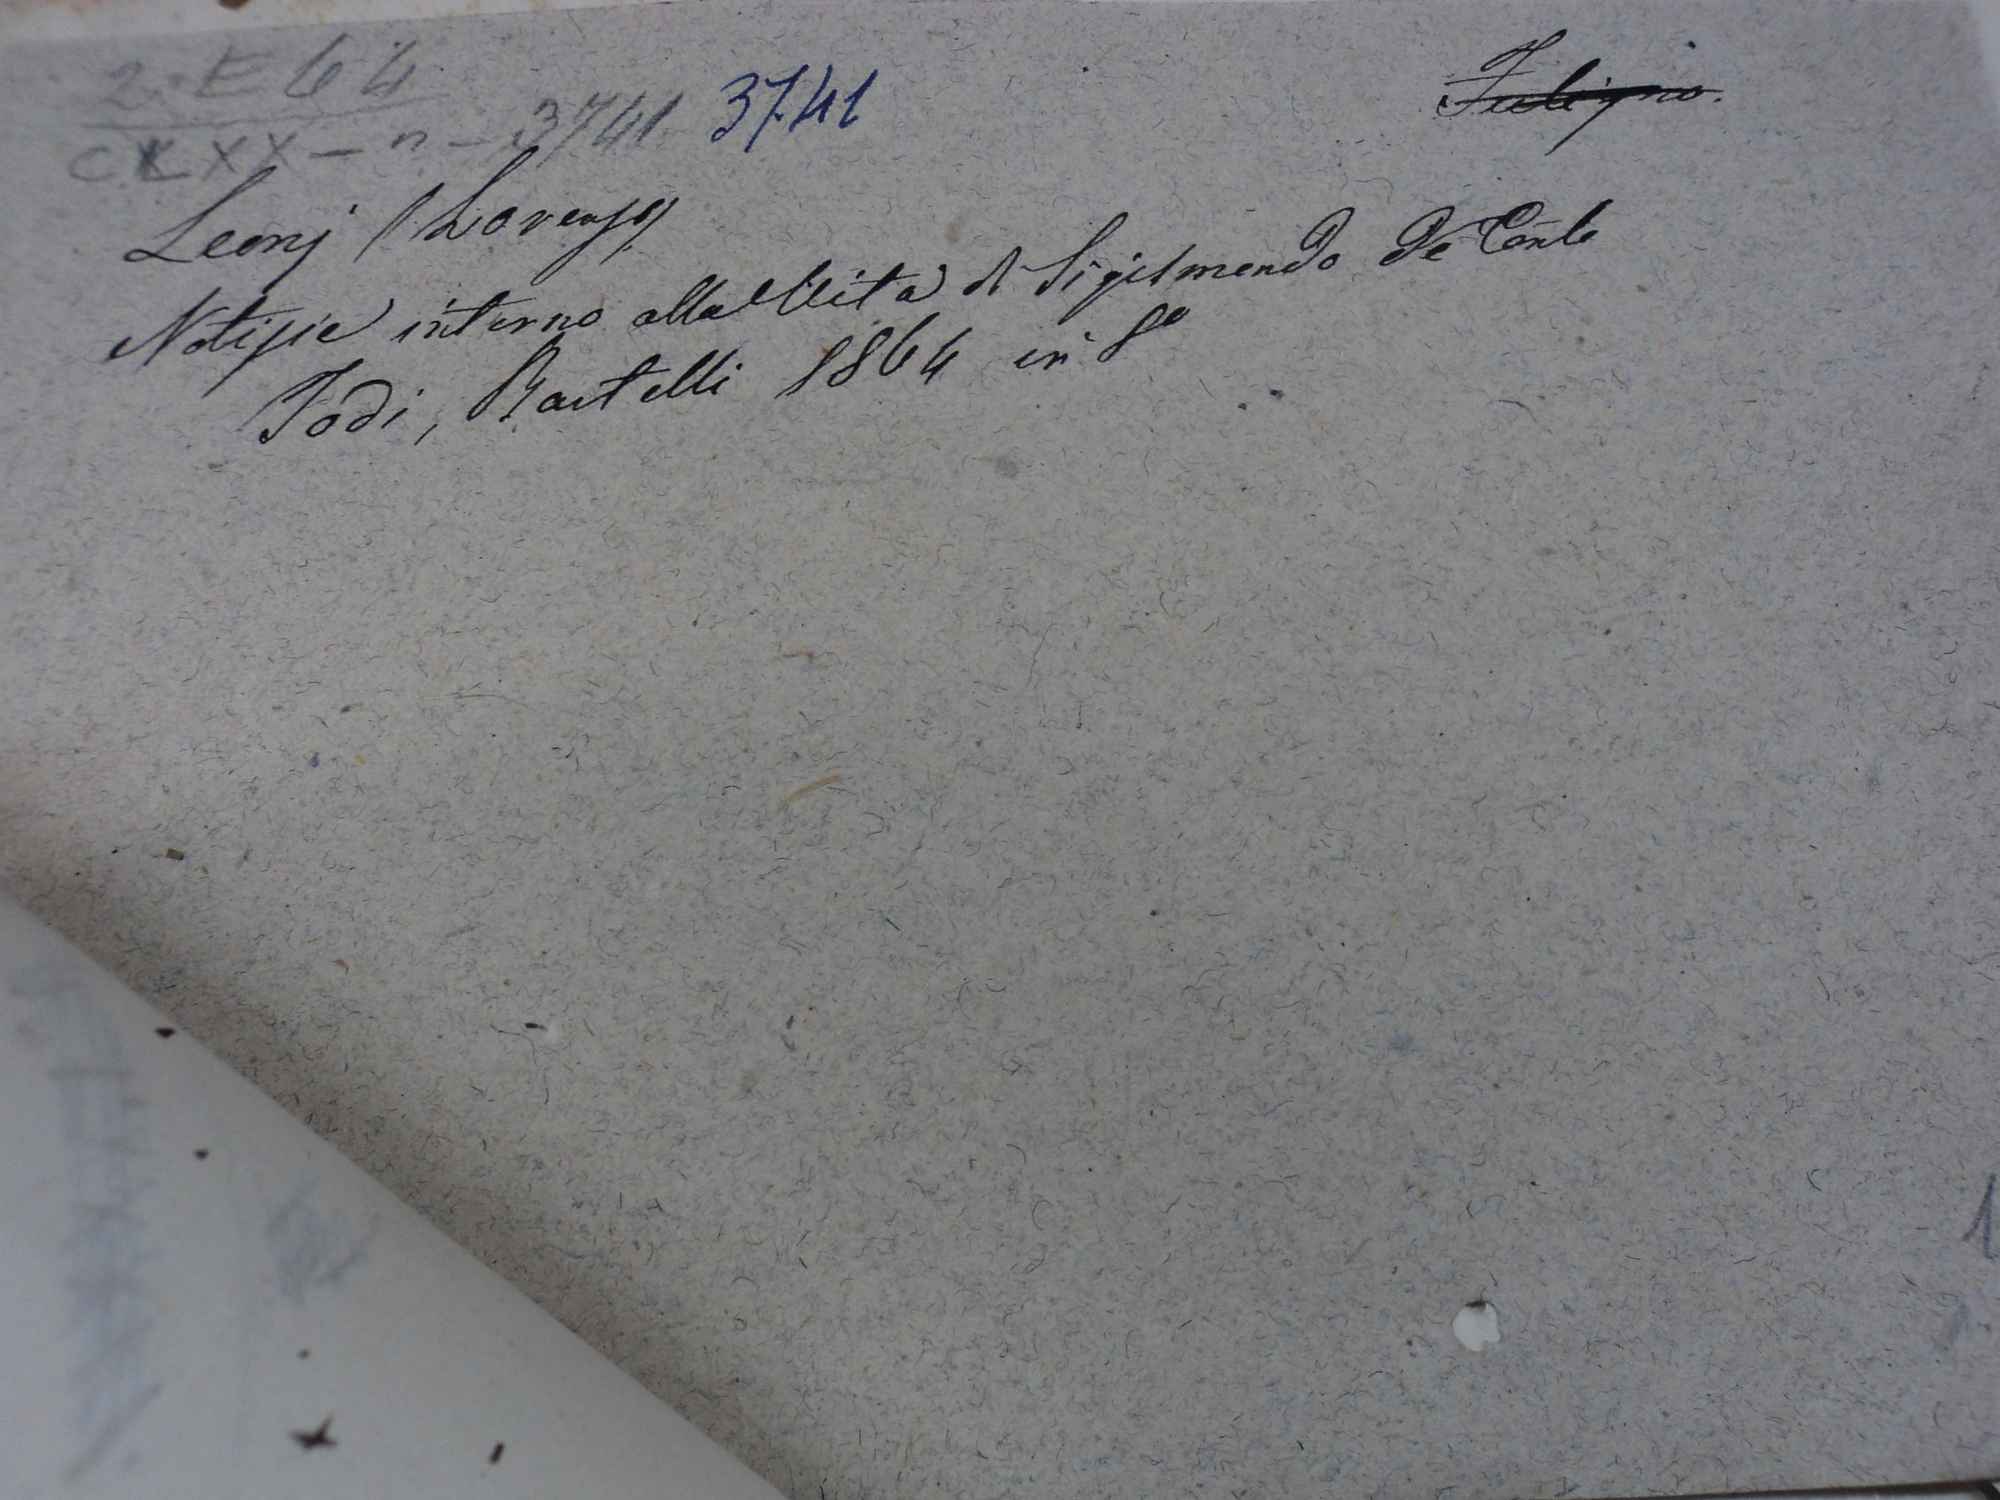 2. E 64
CLXX - n - 3741 3741
Fuligno.
Leonj (Lorenzo)
Notizie intorno alla Vita di Sigismondo De Conte
Todi, Bartelli 1864 in 8º
1